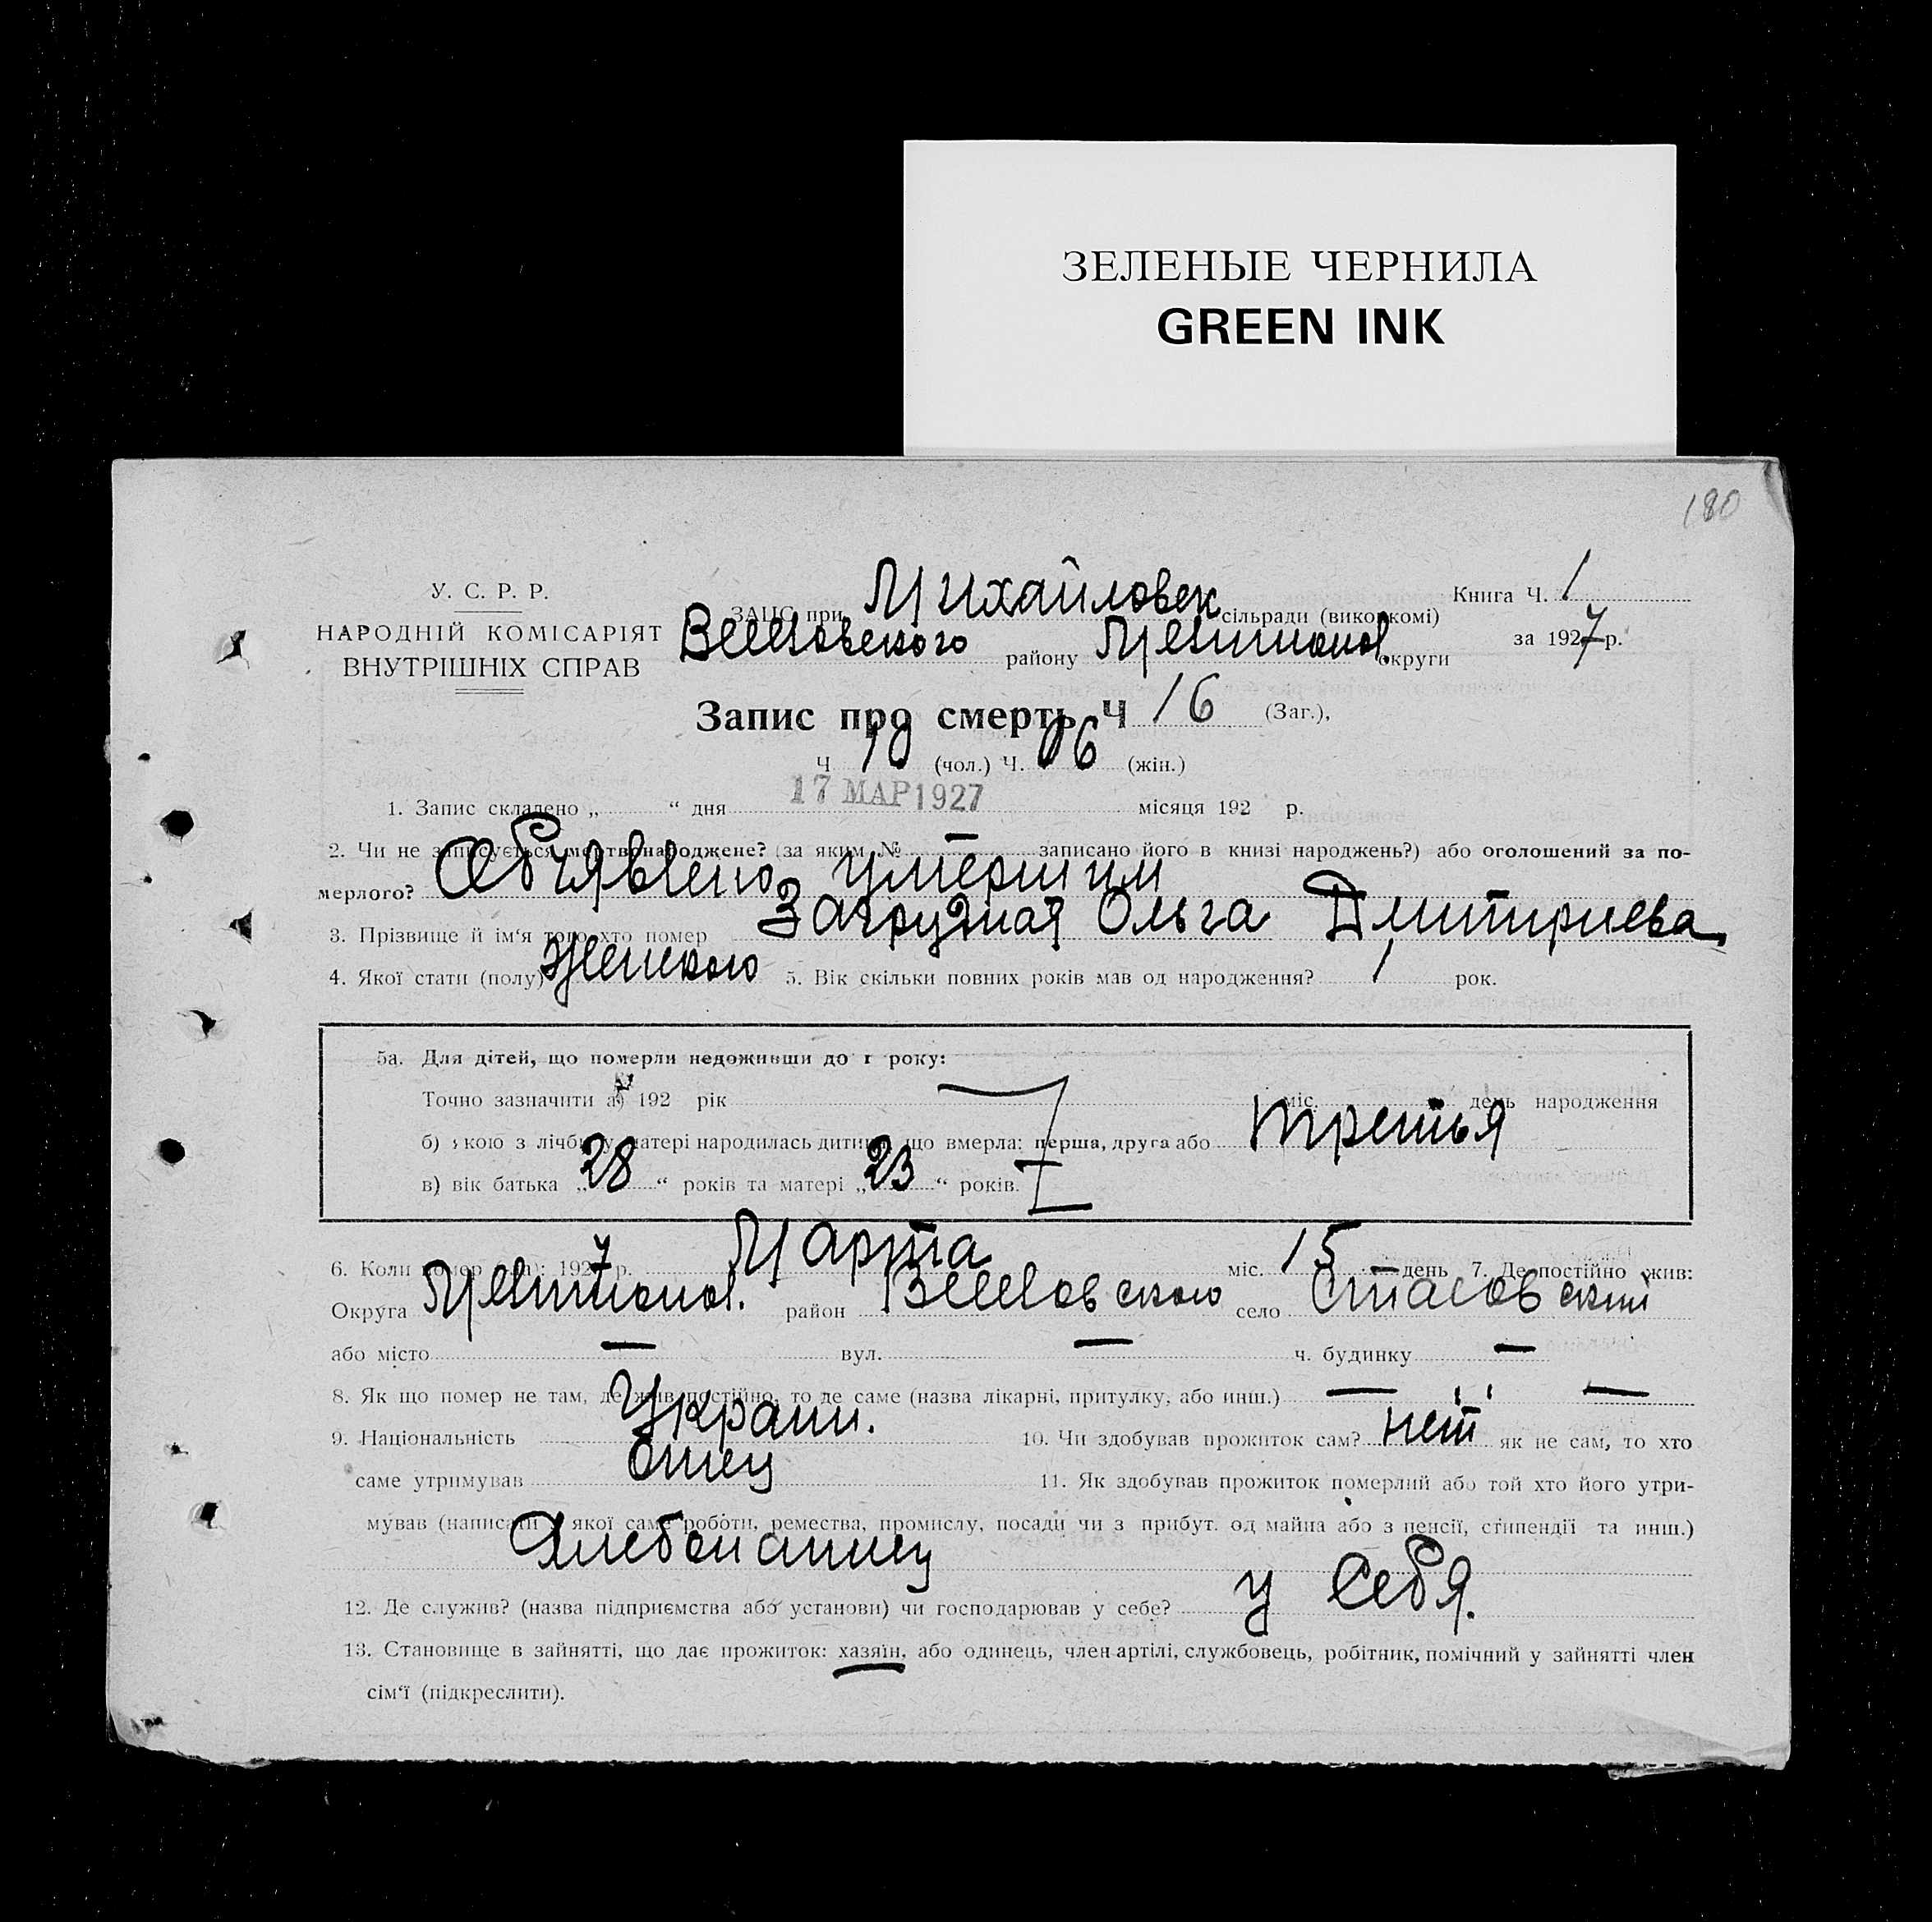 ЗЕЛЕНЫЕ ЧЕРНИЛА
GREEN INK
180
У. С. Р. Р.
НАРОДНІЙ КОМІСАРІЯТ
ВНУТРІШНІХ СПРАВ
ЗАЦС при Михайловск сільради (виконкомі)
району округи
Книга Ч. 1
за 1927 р.
Запис про смерть Ч 16 (Заг.),
Ч 10 (чол.) Ч. 06 (жін.)
1. Запис складено „ “ дня 17 МАР 1927 місяця 192 р.
2. Чи не записується мертвонароджене? (за яким № — записано його в книзі народжень?) або оголошений за по-
мерлого? Объявлено умершим
3. Прізвище й ім‘я того хто помер Загрудная Ольга Дмитриева
4. Якої стати (полу) Женского 5. Вік скільки повних років мав од народження? 1 рок.
5а. Для дітей, що померли недоживши до 1 року:
Точно зазначити а) 192 рік міс. день народження
б) якою з лічби у матері народилась дитина, що вмерла: перша, друга або третья
в) вік батька „28“ років та матері „23“ років.
6. Коли помер (ла): 1927 р. Марта міс. 15 день 7. Де постійно жив:
Округа район село Стасовский
або місто — вул. — ч. будинку —
8. Як що помер не там, де жив постійно, то де саме (назва лікарні, притулку, або инш.) — —
9. Національність Украин. 10. Чи здобував прожиток сам? нет як не сам, то хто
саме утримував отец 11. Як здобував прожиток померлий або той хто його утри-
мував (написати з якої саме роботи, ремества, промислу, посади чи з прибут. од майна або з пенсії, стипендії та инш.)
Хлебопашец
12. Де служив? (назва підприємства або установи) чи господарював у себе? у себя.
13. Становище в зайнятті, що дає прожиток: хазяїн, або одинець, член артілі, службовець, робітник, помічний у зайнятті член
сім‘ї (підкреслити).